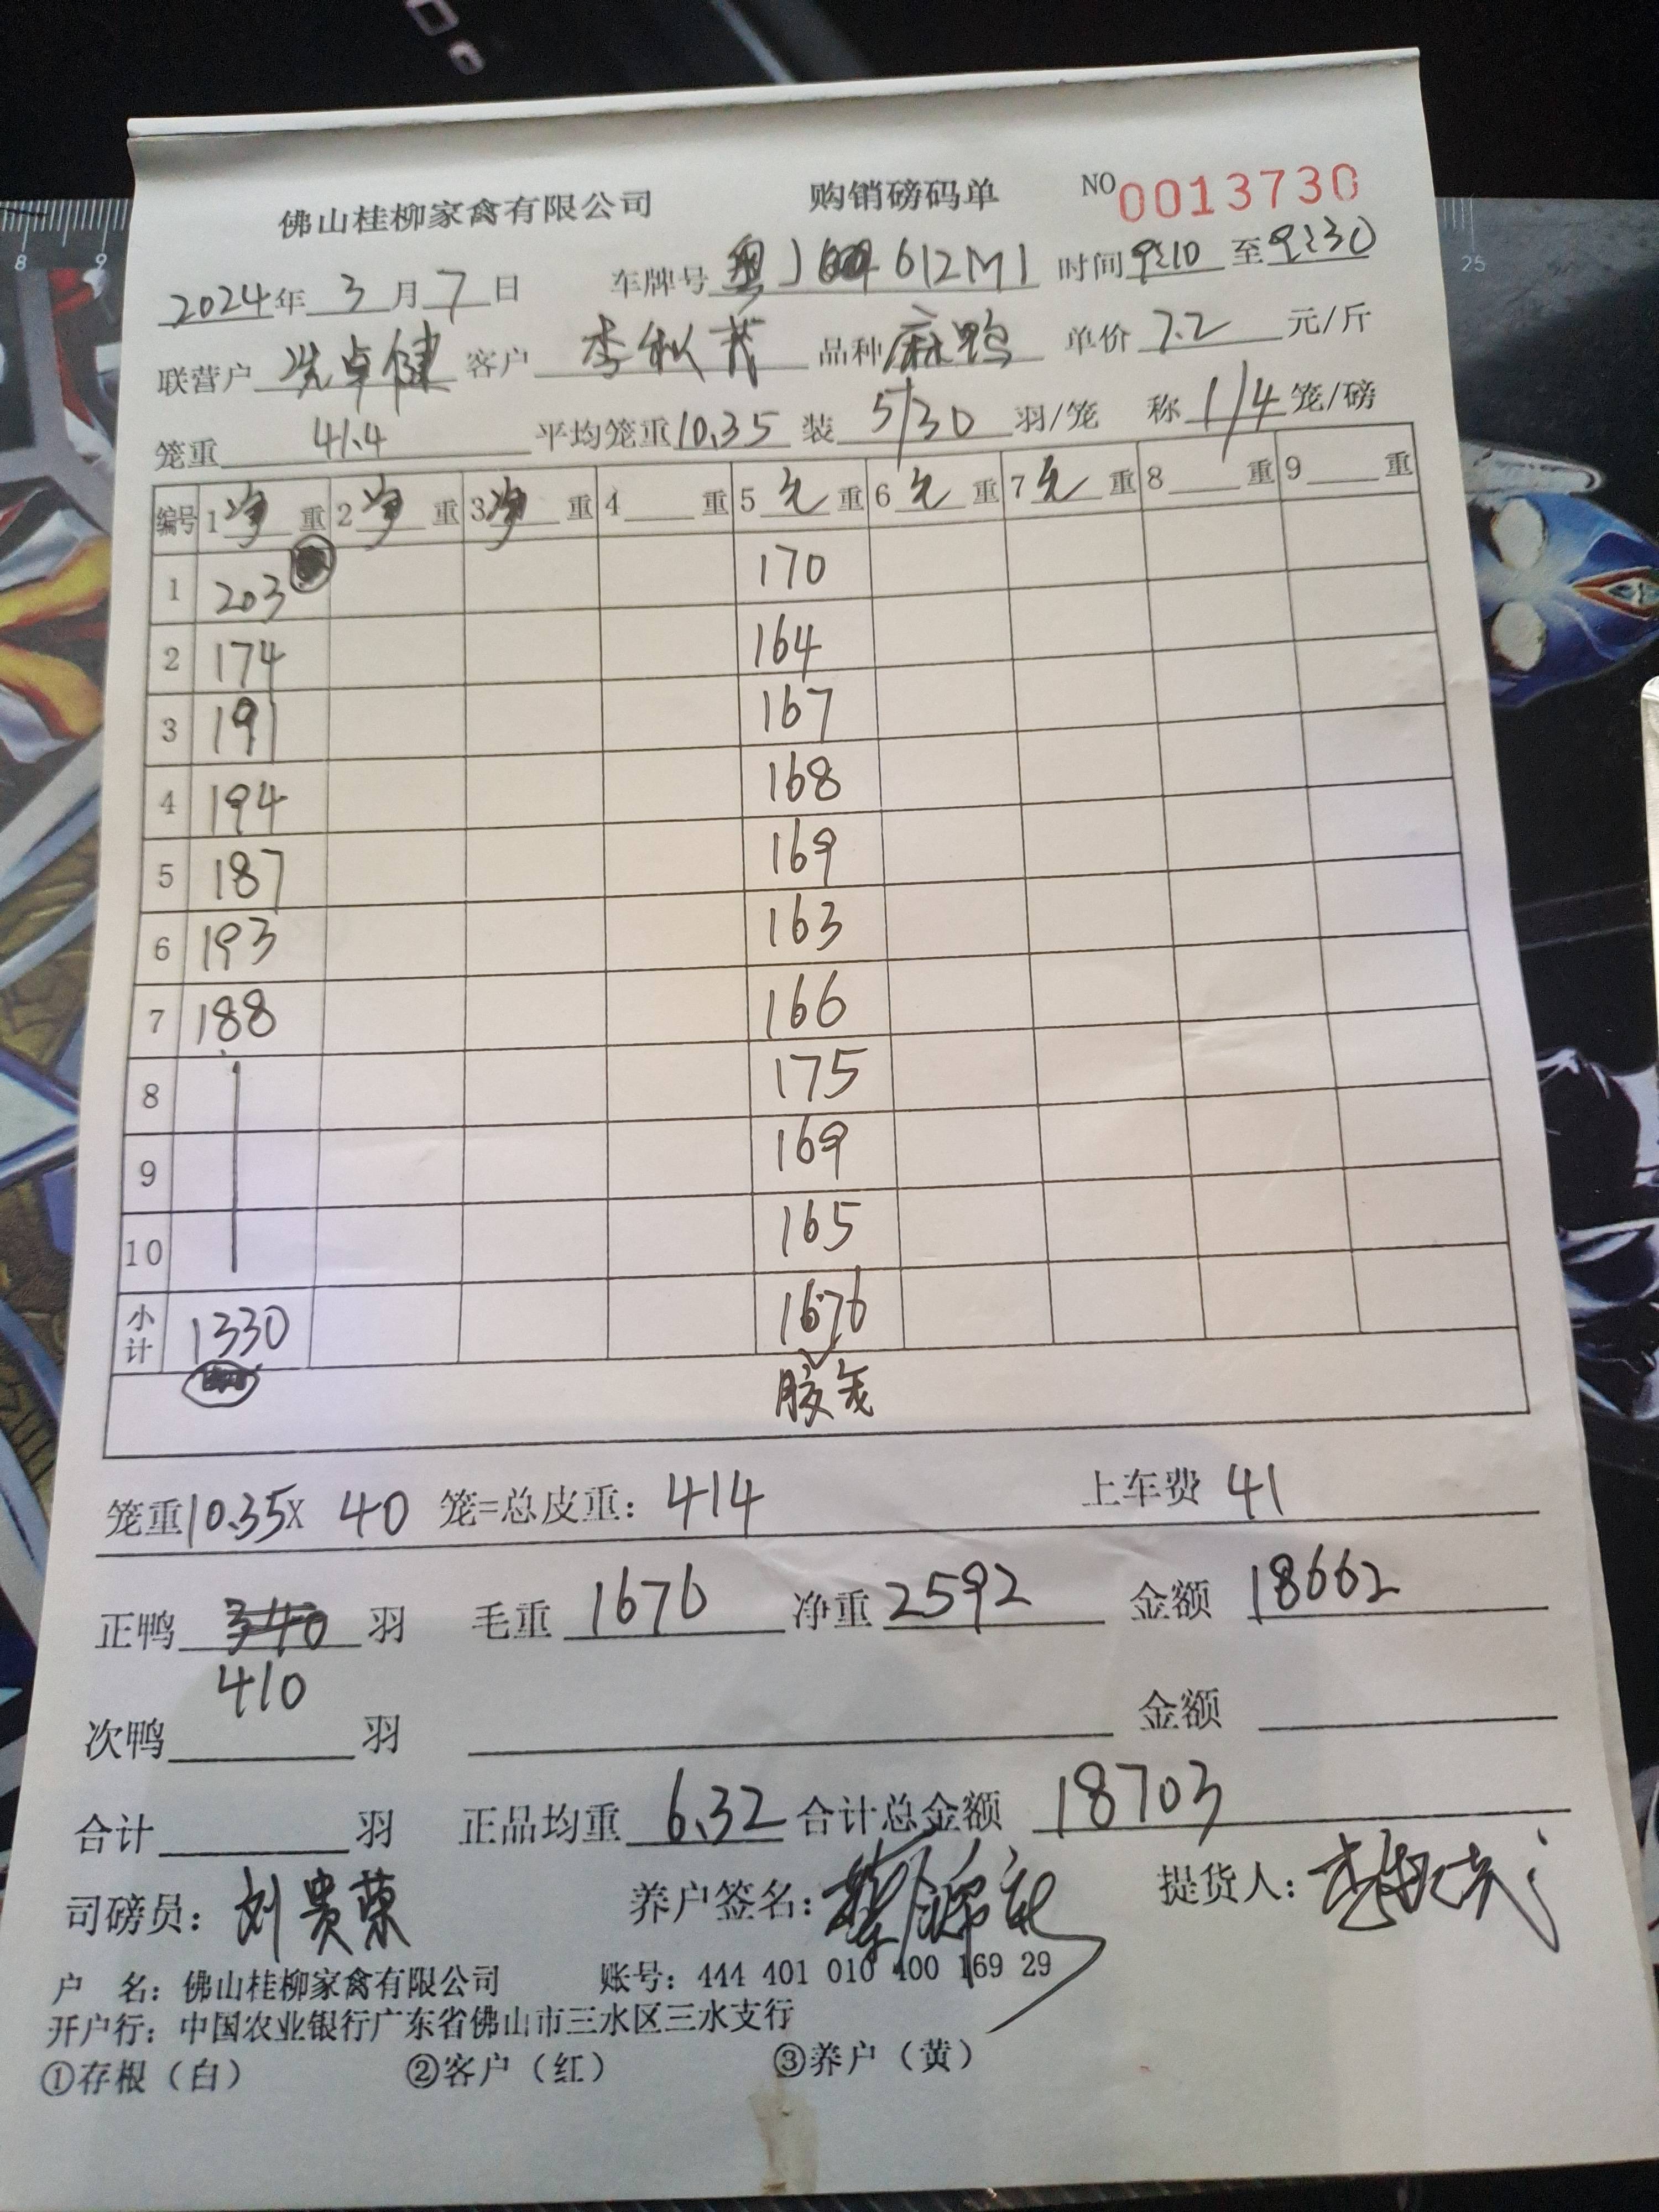 佛山桂柳家禽有限公司 购销磅码单 NO 0013730
2024年 3 月 7 日 车牌号 粤J 612M1 时间 9:10 至 9:30
联营户 冼卓健 客户 李秋茂 品种 麻鸭 单价 7.2 元/斤
笼重 41.4 平均笼重 10.35 装 5/30 羽/笼 称 1/4 笼/磅
编号 1 净 重 2 净 重 3 净 重 4 重 5 毛 重 6 毛 重 7 毛 重 8 重 9 重
1 203 170
2 174 164
3 191 167
4 194 168
5 187 169
6 193 163
7 188 166
8 175
9 169
10 165
小计 1330 1676
胶笼
笼重 10.35 X 40 笼=总皮重: 414 上车费 41
正鸭 340 羽 毛重 1676 净重 2592 金额 18662
410
次鸭 羽 金额
合计 羽 正品均重 6.32 合计总金额 18703
司磅员: 刘贵荣 养户签名: 提货人:
户 名: 佛山桂柳家禽有限公司 账号: 444 401 010 400 169 29
开户行: 中国农业银行广东省佛山市三水区三水支行
①存根（白） ②客户（红） ③养户（黄）